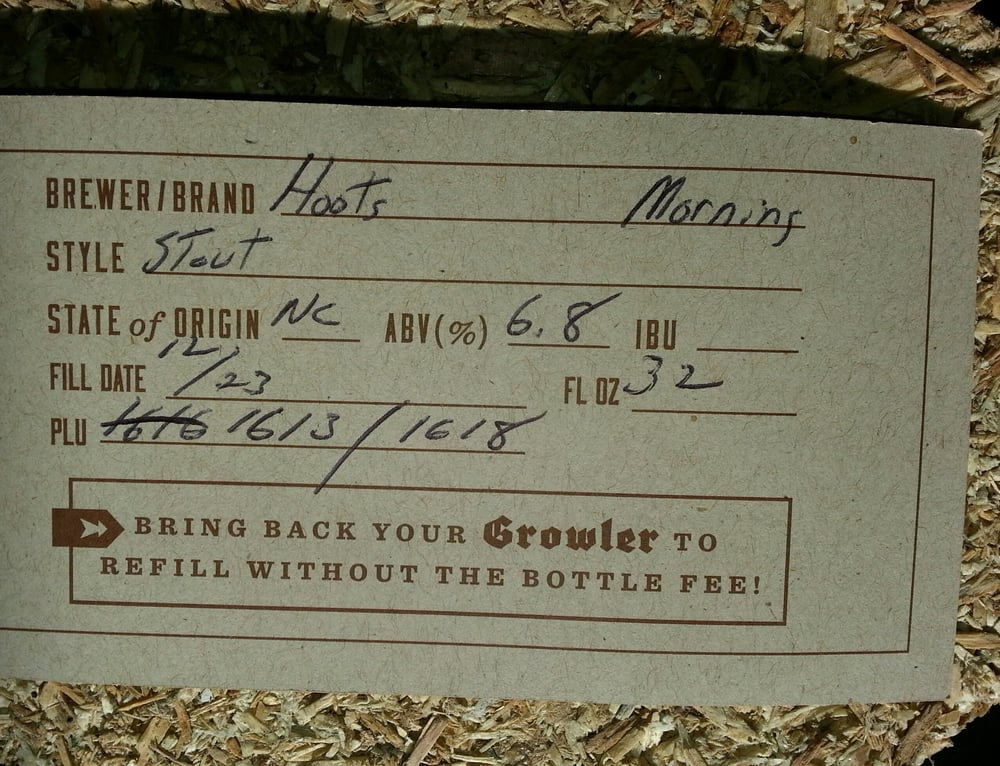 BREWER/BRAND Hoots Morning
STYLE Stout
STATE of ORIGIN NC ABV(%) 6.8 IBU
FILL DATE 12/23 FL OZ 32
PLU 1616 1613 / 1618
BRING BACK YOUR Growler TO
REFILL WITHOUT THE BOTTLE FEE!